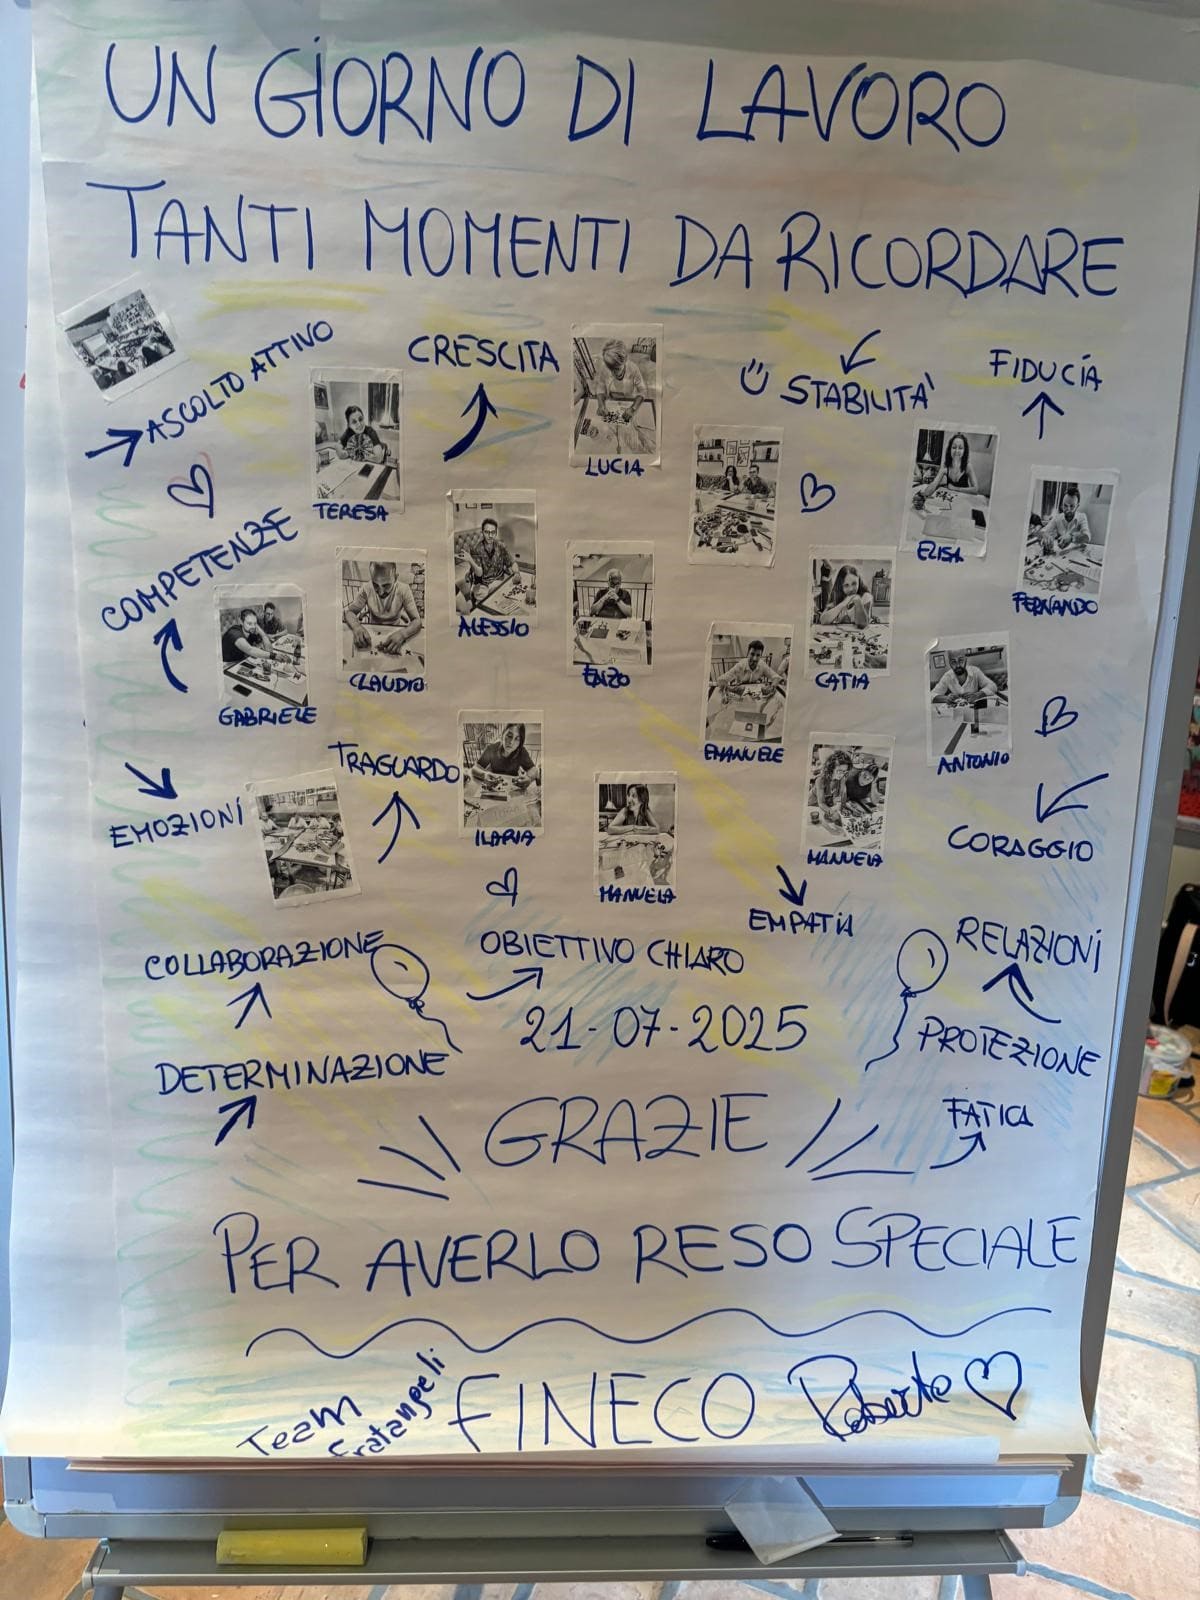 UN GIORNO DI LAVORO
TANTI MOMENTI DA RICORDARE
ASCOLTO ATTIVO
CRESCITA
STABILITA'
FIDUCIA
LUCIA
TERESA
COMPETENZE
ELISA
FERNANDO
ALESSIO
CLAUDIO
ENZO
CATIA
GABRIELE
EMANUELE
ANTONIO
TRAGUARDO
EMOZIONI
ILARIA
MANUELA
MANUELA
CORAGGIO
EMPATIA
COLLABORAZIONE
OBIETTIVO CHIARO
RELAZIONI
21-07-2025
PROTEZIONE
DETERMINAZIONE
GRAZIE
FATICA
PER AVERLO RESO SPECIALE
Team
Fratangeli
FINECO
Roberta